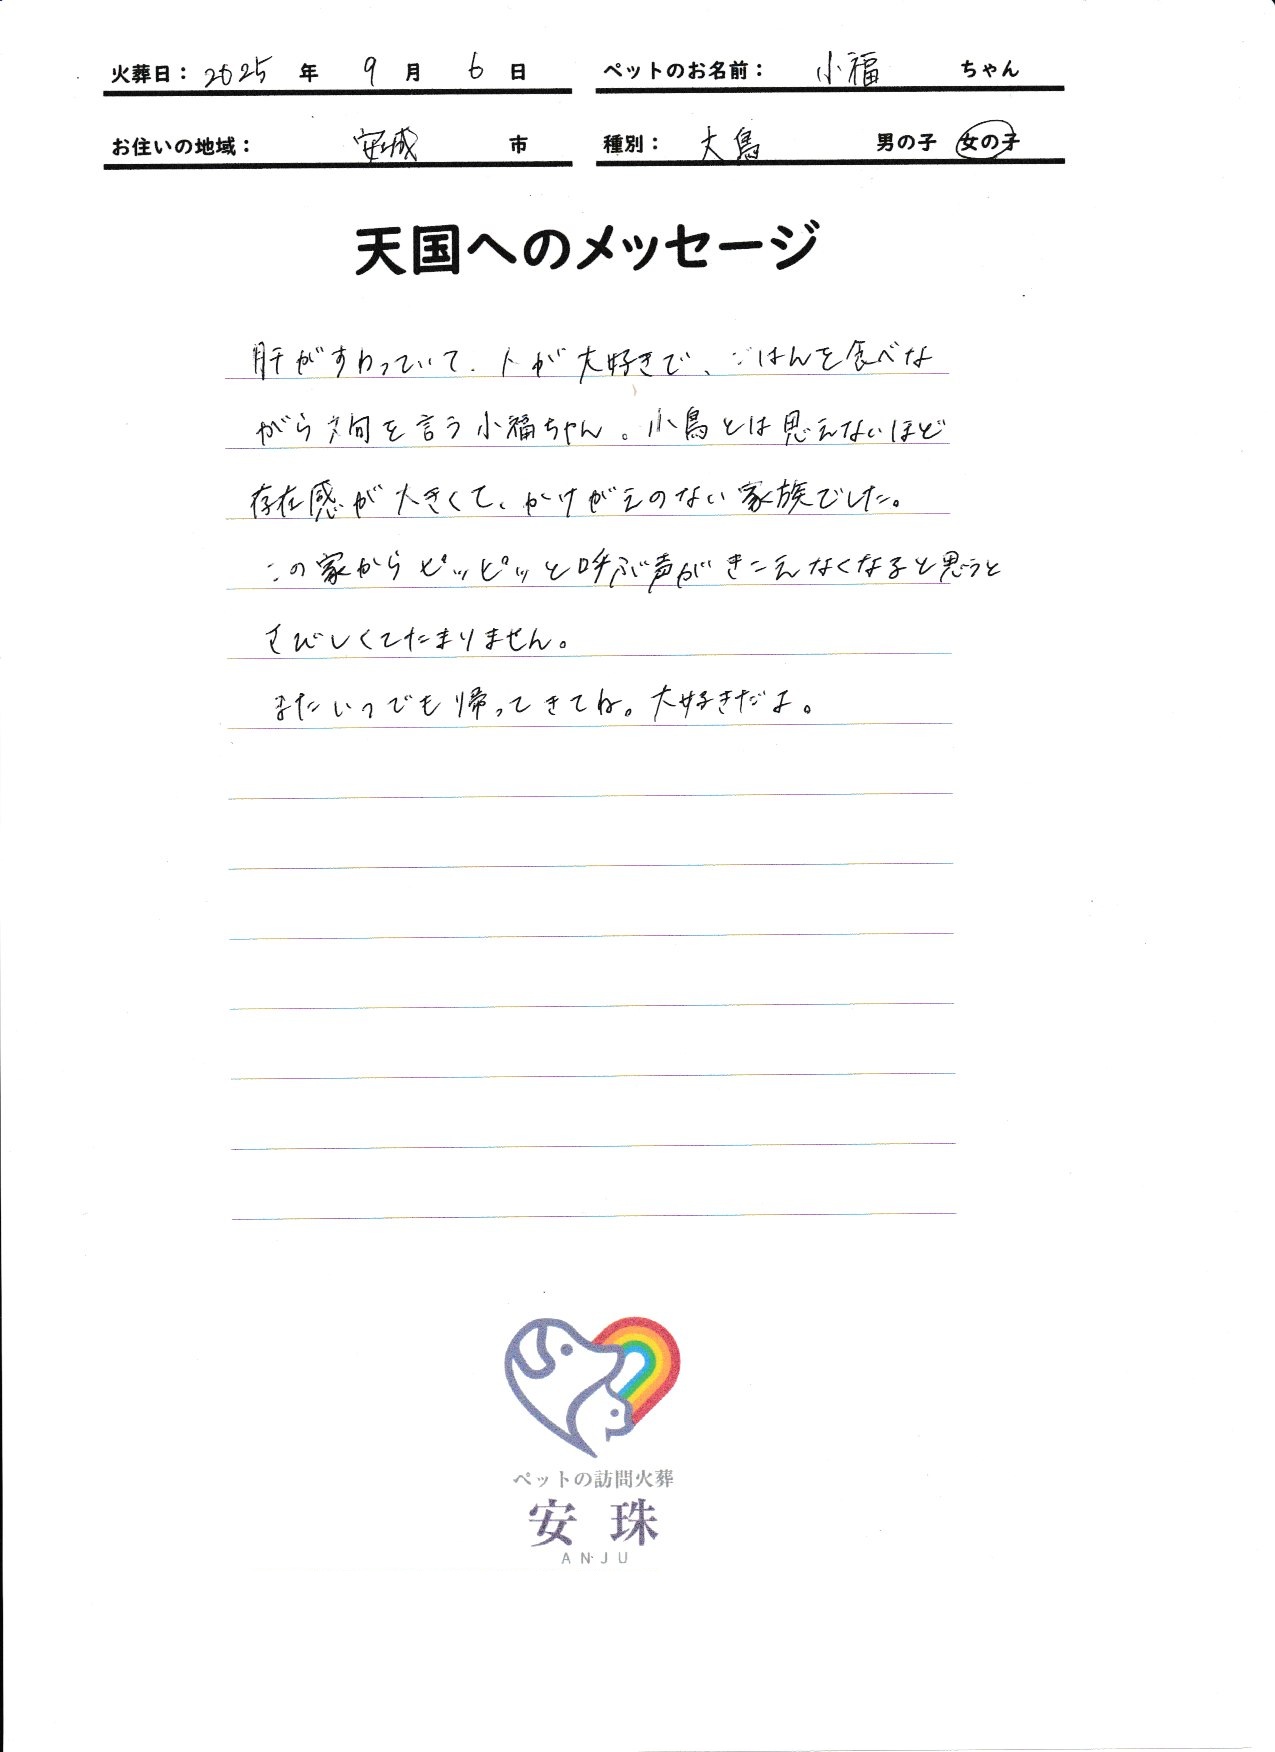 火葬日： 2025 年 9 月 6 日 ペットのお名前： 小福 ちゃん
お住いの地域： 安城 市 種別： 文鳥 男の子 女の子
天国へのメッセージ
肝がすわっていて、人が大好きで、ごはんを食べな
がら文句を言う小福ちゃん。小鳥とは思えないほど
存在感が大きくて、かけがえのない家族でした。
この家からピッピッと呼ぶ声がきこえなくなると思うと
さびしくてたまりません。
またいつでも帰ってきてね。大好きだよ。
ペットの訪問火葬
安珠
ANJU